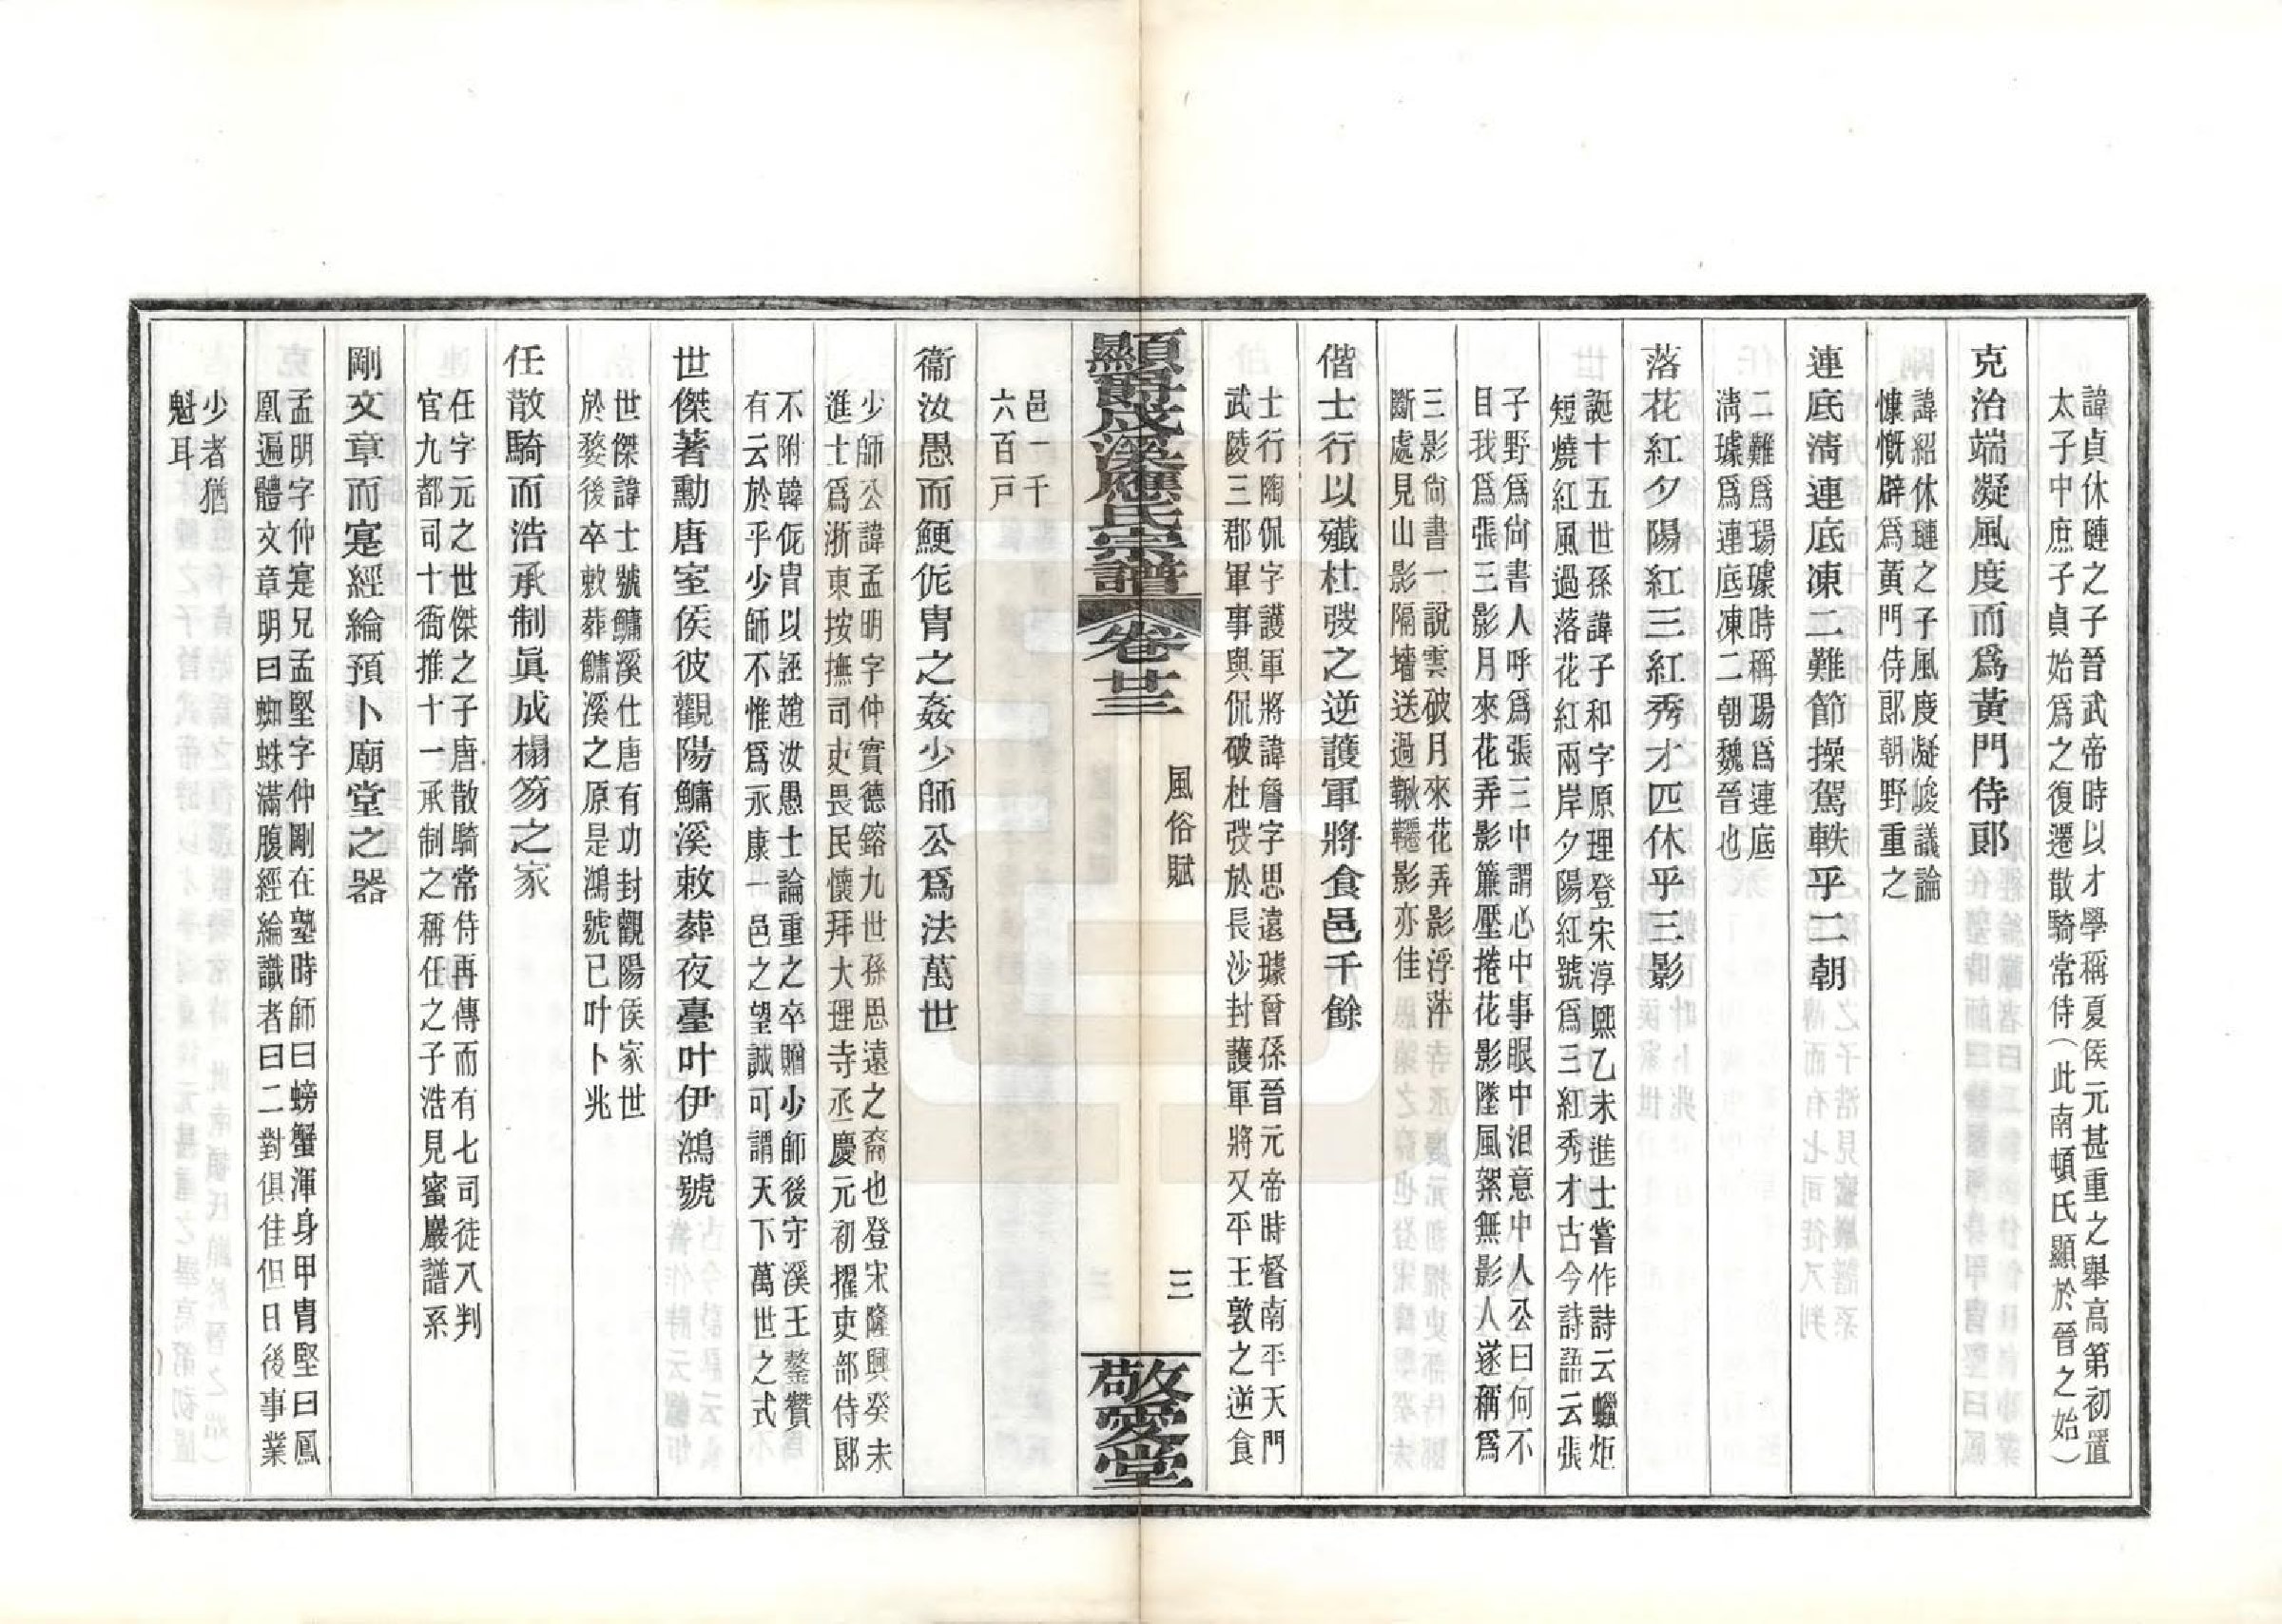 諱貞休璉之子晉武帝時以才學稱夏侯元甚重之舉高第初置
太子中庶子貞始爲之復遷散騎常侍(此南頓氏顯於晉之始)
克治端凝風度而爲黃門侍郞
諱紹休璉之子風度凝峻議論
慷慨辟爲黃門侍郞朝野重之
連底淸連底凍二難節操駕軼乎二朝
二難爲瑒璩時稱瑒爲連底
淸璩爲連底凍二朝魏晉也
落花紅夕陽紅三紅秀才匹休乎三影
誕十五世孫諱子和字原理登宋淳熙乙未進士嘗作詩云蠟炬
短燒紅風過落花紅兩岸夕陽紅號爲三紅秀才古今詩話云張
子野爲尙書人呼爲張三中謂心中事眼中淚意中人公曰何不
目我爲張三影月來花弄影簾壓捲花影墜風絮無影人遂稱爲
三影尙書一說雲破月來花弄影浮萍
斷處見山影隔墻送過鞦韆影亦佳
偕士行以殲杜弢之逆護軍將食邑千餘
士行陶侃字護軍將諱詹字思遠璩曾孫晉元帝時督南平天門
武陵三郡軍事與侃破杜弢於長沙封護軍將又平王敦之逆食
顯爵戊溪應氏宗譜 卷廿三 風俗賦 三 敬愛堂
邑一千
六百戸
衞汝愚而鯁侂胄之姦少師公爲法萬世
少師公諱孟明字仲實德鎔九世孫思遠之裔也登宋隆興癸未
進士爲浙東按撫司吏畏民懷拜大理寺丞慶元初擢吏部侍郞
不附韓侂胄以誣趙汝愚士論重之卒贈少師後守溪王鏊贊
有云於乎少師不惟爲永康一邑之望誠可謂天下萬世之式
世傑著勳唐室侯彼觀陽鱅溪敕葬夜臺叶伊鴻號
世傑諱士號鱅溪仕唐有功封觀陽侯家世
於婺後卒敕葬鱅溪之原是鴻號已叶卜兆
任散騎而浩承制眞成榻笏之家
任字元之世傑之子唐散騎常侍再傳而有七司徒入判
官九都司十衙推十一承制之稱任之子浩見蜜巖譜系
剛文章而寔經綸預卜廟堂之器
孟明字仲寔兄孟堅字仲剛在塾時師曰螃蟹渾身甲胄堅曰鳳
凰遍體文章明曰蜘蛛滿腹經綸識者曰二對俱佳但日後事業
少者猶
魁耳